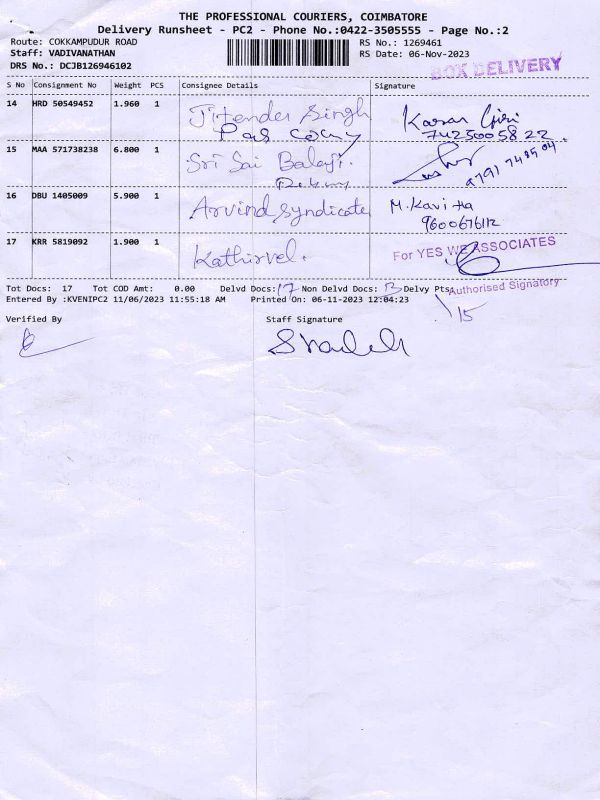 THE PROFESSIONAL COURIERS, COIMBATORE
Delivery Runsheet - PC2 - Phone No.:0422-3505555 - Page No.:2
Route: COKKAMPUDUR ROAD RS No.: 1269461
Staff: VADIVANATHAN RS Date: 06-Nov-2023
DRS No.: DCJB126946102 BOX DELIVERY
S No Consignment No Weight PCS Consignee Details Signature
14 HRD 50549452 1.960 1 Jitender Singh Karan Giri
7425005822
15 MAA 571738238 6.800 1 Sri Sai Balaji. 9791748504
16 DBU 1405009 5.900 1 Arvind syndicate M. Kavitha
9600676112
17 KRR 5819092 1.900 1 Kathirvel. For YES WE ASSOCIATES
Authorised Signatory
Tot Docs: 17 Tot COD Amt: 0.00 Delvd Docs: 17 Non Delvd Docs: Delvy Pts
Entered By :KVENIPC2 11/06/2023 11:55:18 AM Printed On: 06-11-2023 12:04:23
15
Verified By Staff Signature